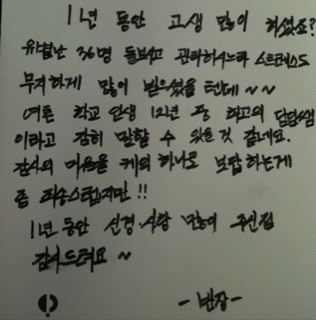 1년 동안 고생 많이 하셨죠?
유별난 36명 돌보시고 관리하시느라 스트레스도
무지하게 많이 받으셨을 텐데~~
여튼 학교 인생 12년 중 최고의 담임쌤
이라고 감히 말할 수 있을 것 같네요.
감사의 마음을 케익 하나로 보답하는게
좀 죄송스럽지만!!
1년 동안 신경·사랑 많이 주신점
감사드려요~
-반장-